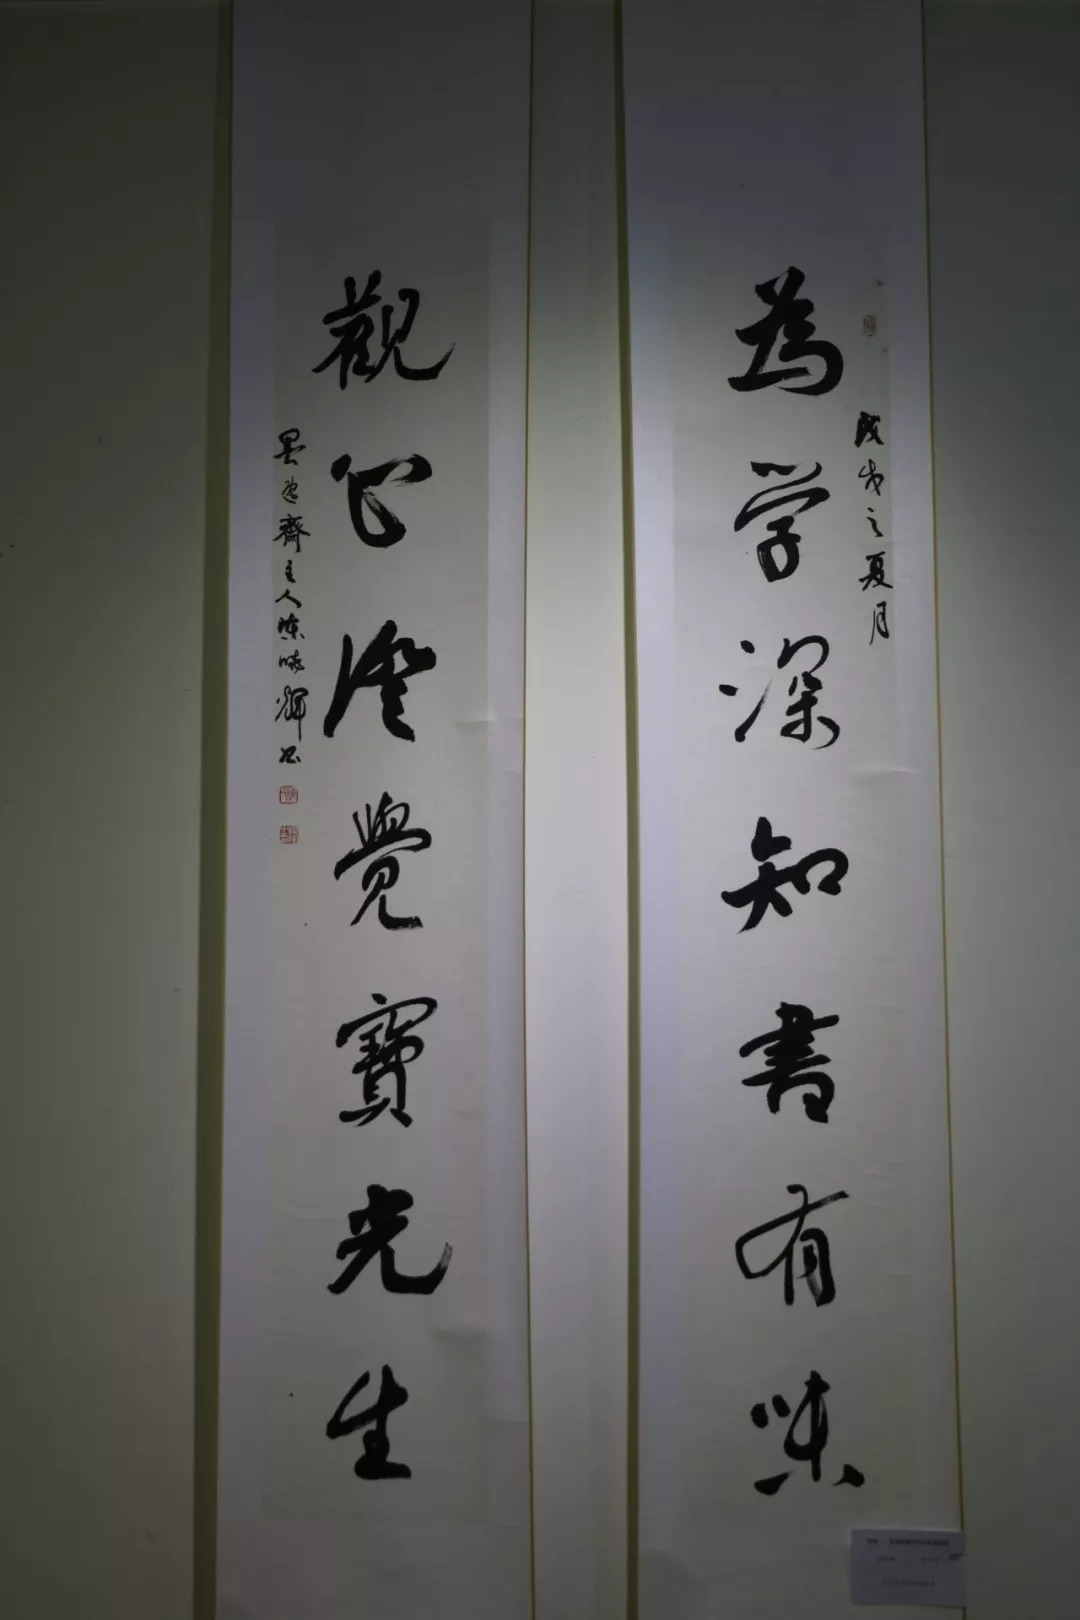 為學深知書有味
戊戌之夏月
觀心澄覺寶光生
墨逸齋主人陳曉輝書